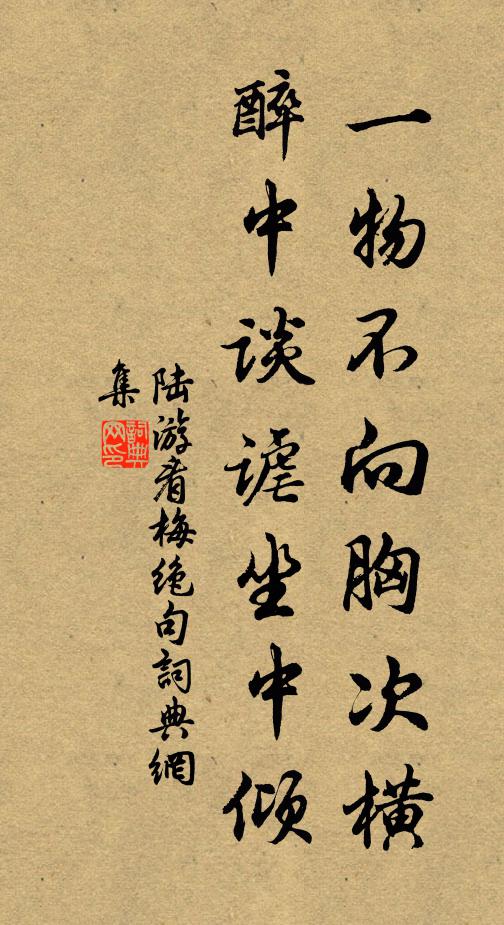 一物不向胸次横
醉中谈谑坐中倾
陆游看梅绝句詞典網
集
詞典网印